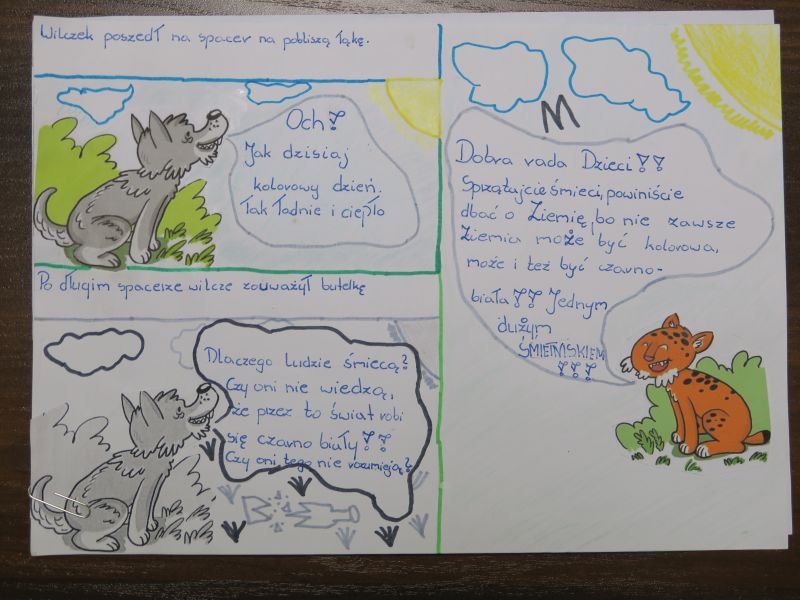 Wilczek poszedł na spacer na pobliszą łąkę.
Och!
Jak dzisiaj
kolorowy dzień.
Tak ładnie i ciepło
Po długim spacerze wilcze zouważył butelkę
Dlaczego Ludzie śmiecą?
Czy oni nie wiedzą,
że przez to świat robi
się czarno biały!!
Czy oni tego nie rozumieją?
M
Dobra rada Dzieci!!
Sprzątajcie śmieci, powiniście
dbać o Ziemię, bo nie zawsze
Ziemia może być kolorowa,
może i też być czarno-
biała!! Jednym
dużym
ŚMIETNISKIEM
!!!